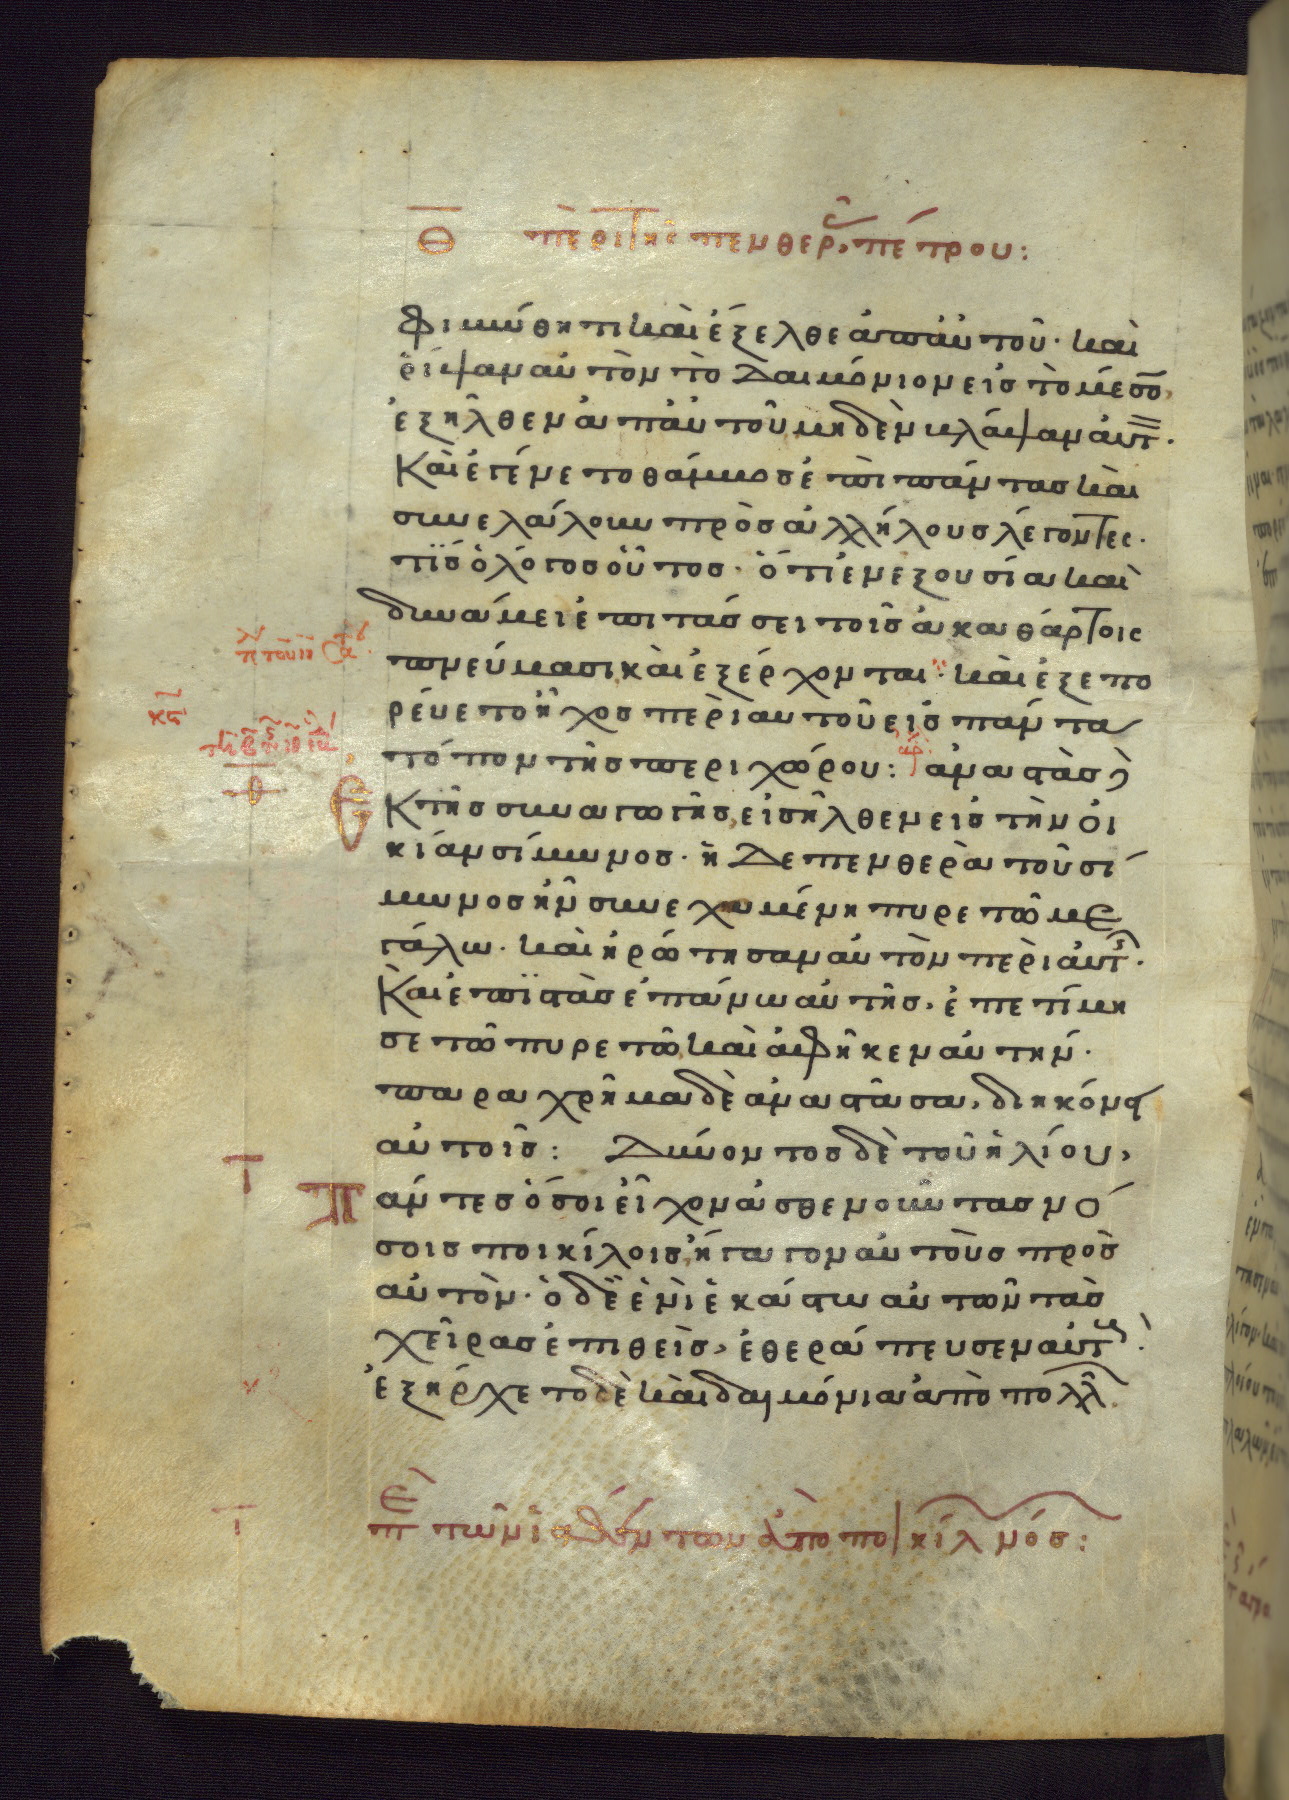 Θ περὶ τῆς πενθερ πέτρου:
φιμώθητι καὶ ἔξελθε ἀπ' αὐτοῦ· καὶ
ῥίψαν αὐτὸν τὸ δαιμόνιον εἰς τὸ μέσο
ἐξῆλθεν ἀπ' αὐτοῦ μηδὲν βλάψαν αὐτ.
Καὶ ἐγένετο θάμβοσ ἐπὶ πάντασ καὶ
συνελάλουν πρὸσ ἀλλήλουσ λέγοντες.
τίς ὁ λόγοσ οὗτοσ· ὅτι ἐν ἐξουσία καὶ
δυνάμει ἐπιτάσσει τοῖσ ἀκαθάρτοις
πνεύμασι καὶ ἐξέρχονται· καὶ ἐξεπο
ρεύετο ἦχοσ περὶ αυτοῦ εἰς πάντα
τόπον τῆσ περιχώρου: ἀναστὰσ δ
Ε Κ τῆσ συναγωγῆσ, εἰσῆλθεν εἰς τὴν οἰ
κίαν σίμωνοσ· ἡ δε πενθερὰ τοῦ σί
μωνοσ ἦν συνεχομένη πυρετῶ με
γάλω· καὶ ἠρώτησαν αὐτὸν περὶ αὐτ.
Καὶ ἐπιστὰσ ἐπάνω αὐτῆσ, ἐπετίμη
σε τῶ πυρετῶ, καὶ ἀφῆκεν αὐτήν.
παραχρῆμα δὲ ἀναστᾶσα, διηκόνει
αὐτοῖσ: Δύνοντοσ δὲ τοῦ ἡλίου,
Ι
Π άντεσ ὅσοι εἶχον ἀσθενοῦντασ νό
σοισ ποικίλοισ, ἤγαγον αὐτοὺσ πρὸσ
αὐτόν· ὁ δὲ ἑνὶ ἑκάστω αὐτῶν τὰσ
χεῖρασ ἐπιθεὶσ, ἐθεράπευσεν αὐτ.
ἐξήρχετο δὲ καὶ δαιμόνια ἀπὸ πολλ
Ι Πε τῶν ἰαθέντων ἀπὸ ποικίλ νόσ: